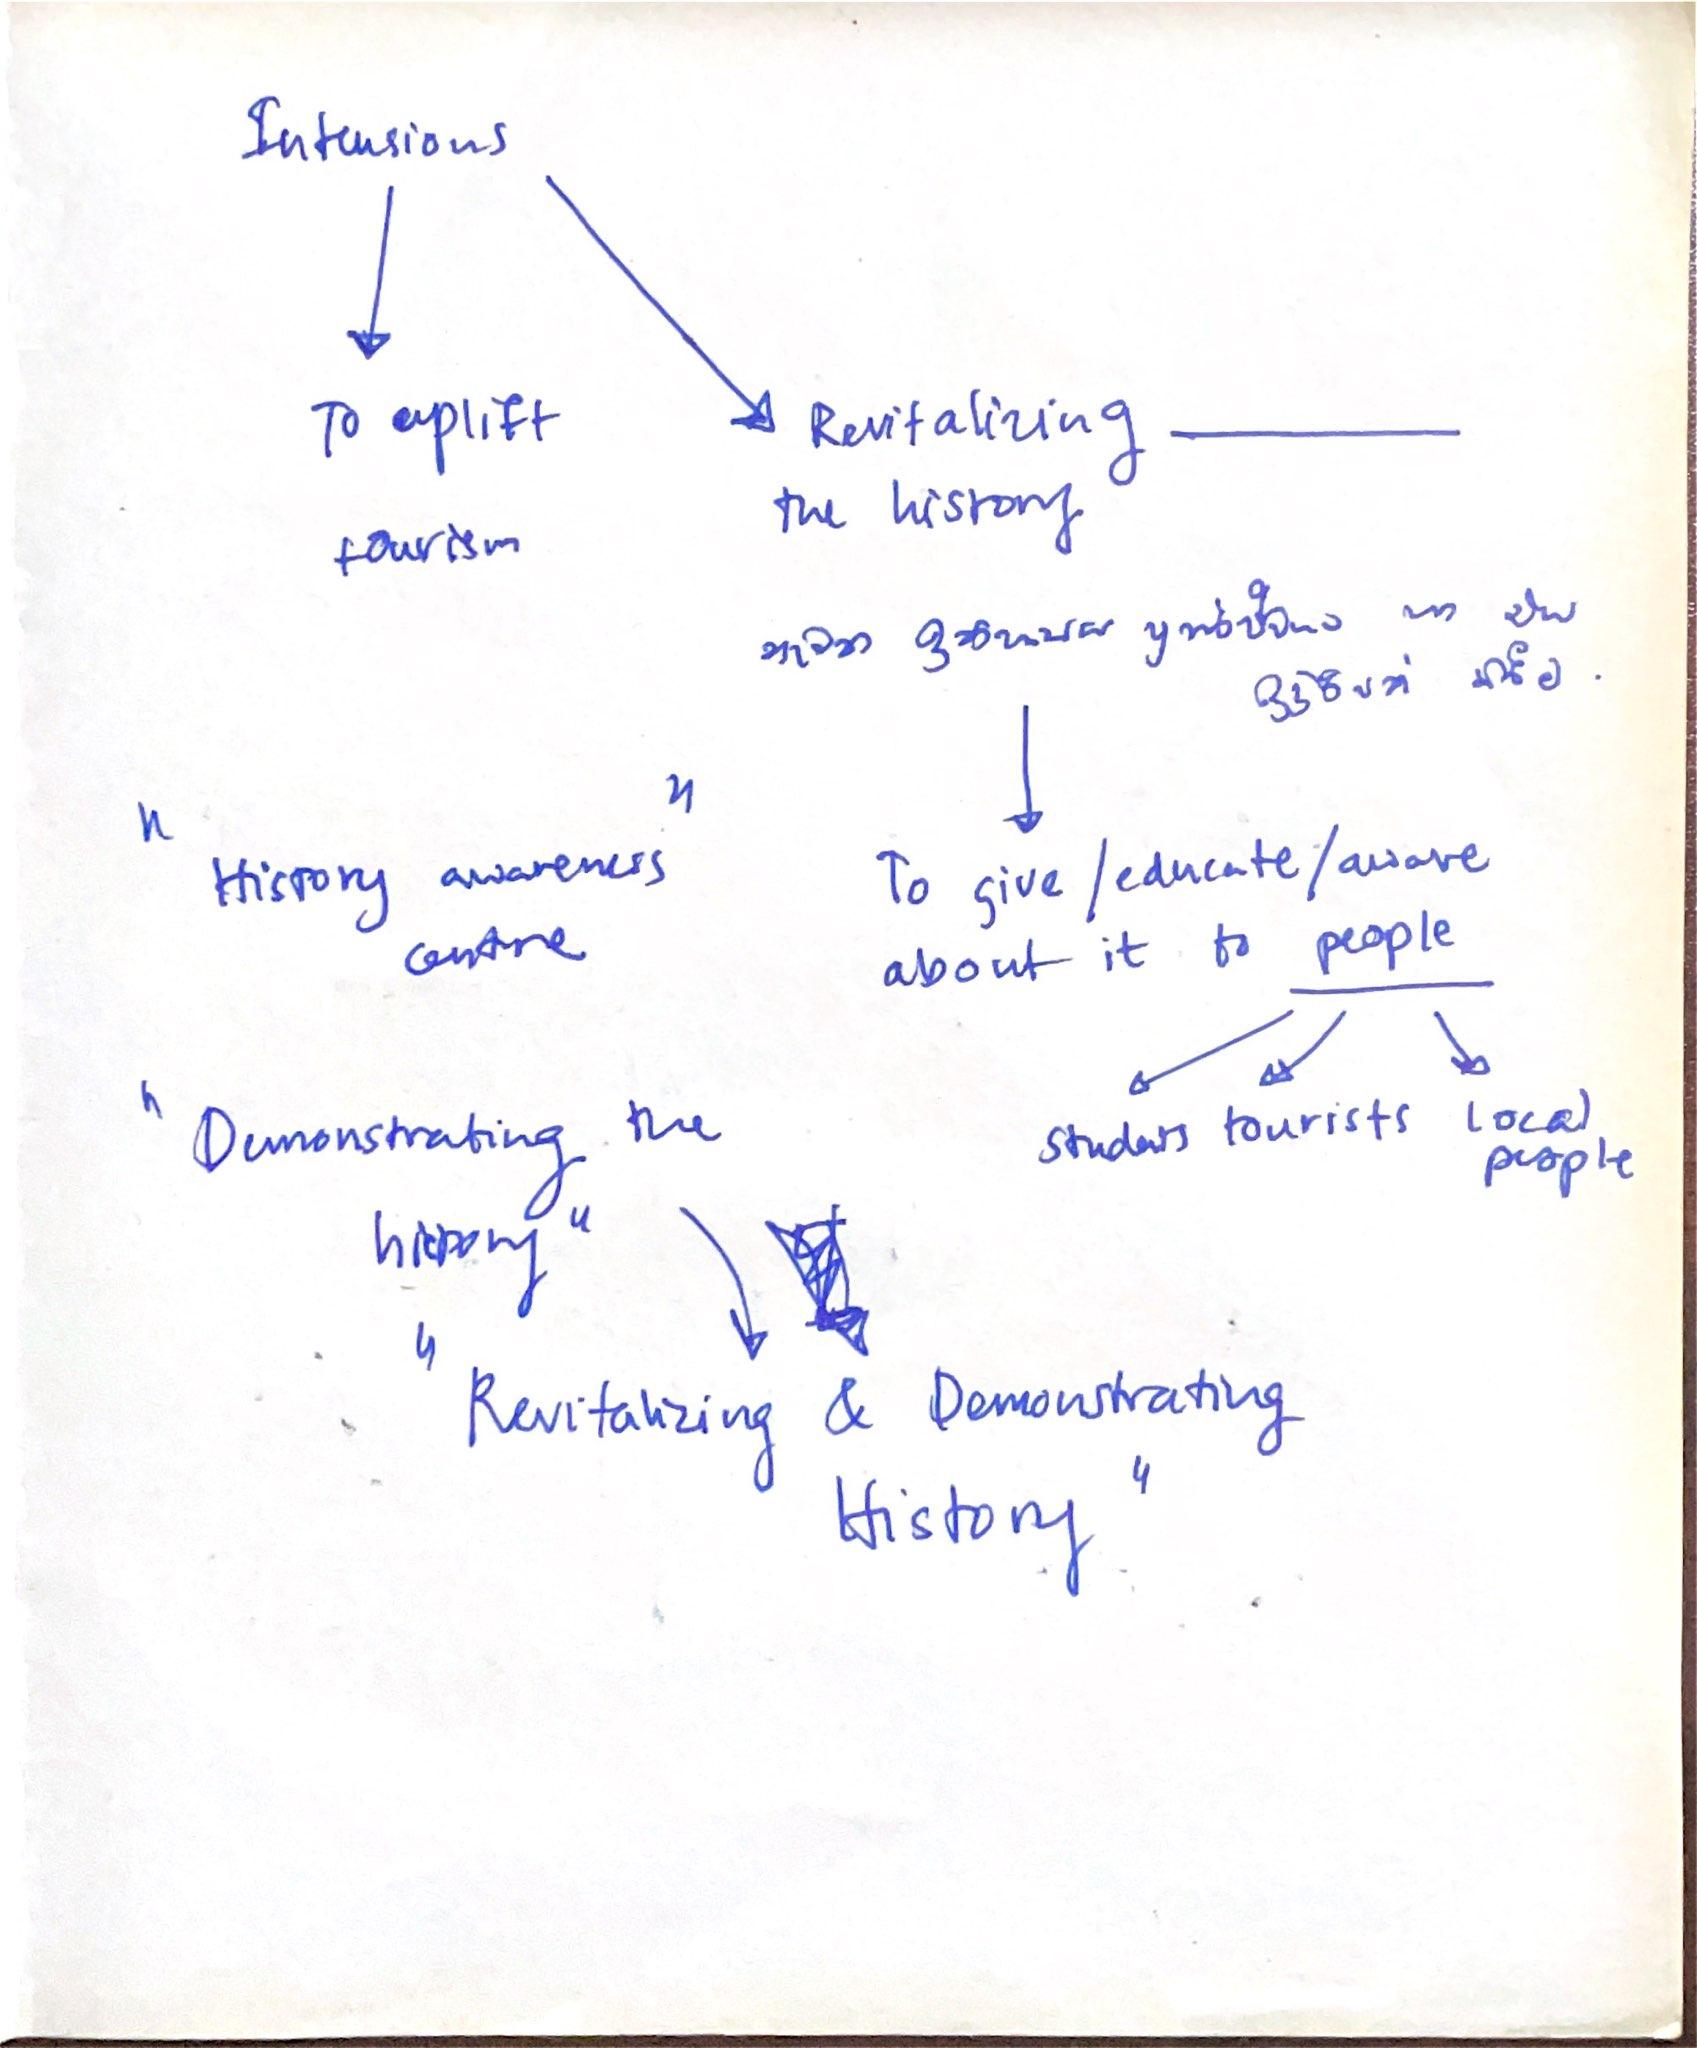 Intensions
To uplift
tourism
Revitalizing
the history
" History awareness "
centre
To give /educate/aware
about it to people
students tourists local
people
" Demonstrating the
history "
" Revitalizing & Demonstrating
History "